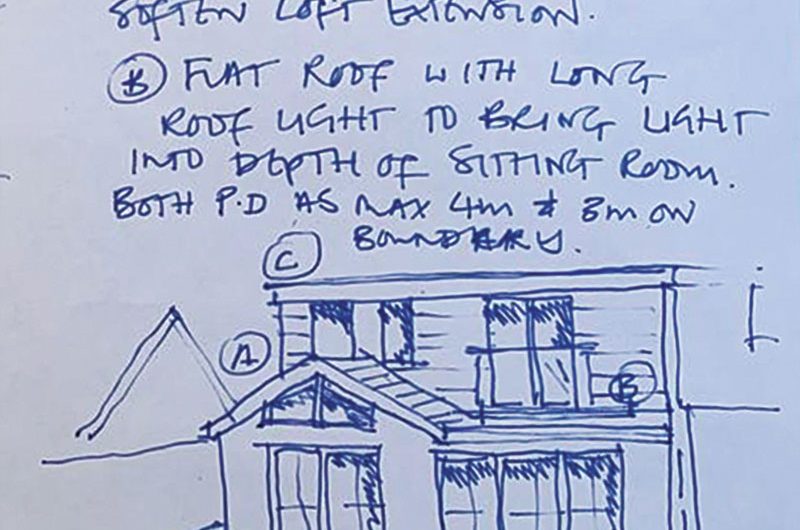 SOFTEN LOFT EXTENSION.
Ⓑ FLAT ROOF WITH LONG
ROOF LIGHT TO BRING LIGHT
INTO DEPTH OF SITTING ROOM.
BOTH P.D AS MAX 4M & 3M ON
BOUNDARY.
Ⓒ
Ⓐ
Ⓑ